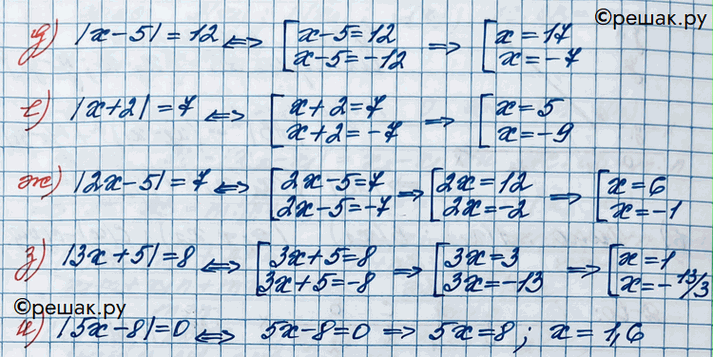 ©решак.ру
д) |x-5| = 12 ⟺ [x-5=12 x-5=-12 ⟹ [x=17 x=-7
е) |x+2| = 7 ⟺ [x+2=7 x+2=-7 ⟹ [x=5 x=-9
ж) |2x-5| = 7 ⟺ [2x-5=7 2x-5=-7 ⟹ [2x=12 2x=-2 ⟹ [x=6 x=-1
з) |3x+5| = 8 ⟺ [3x+5=8 3x+5=-8 ⟹ [3x=3 3x=-13 ⟹ [x=1 x=-13/3
©решак.ру
и) |5x-8| = 0 ⟺ 5x-8=0 ⟹ 5x=8; x=1,6